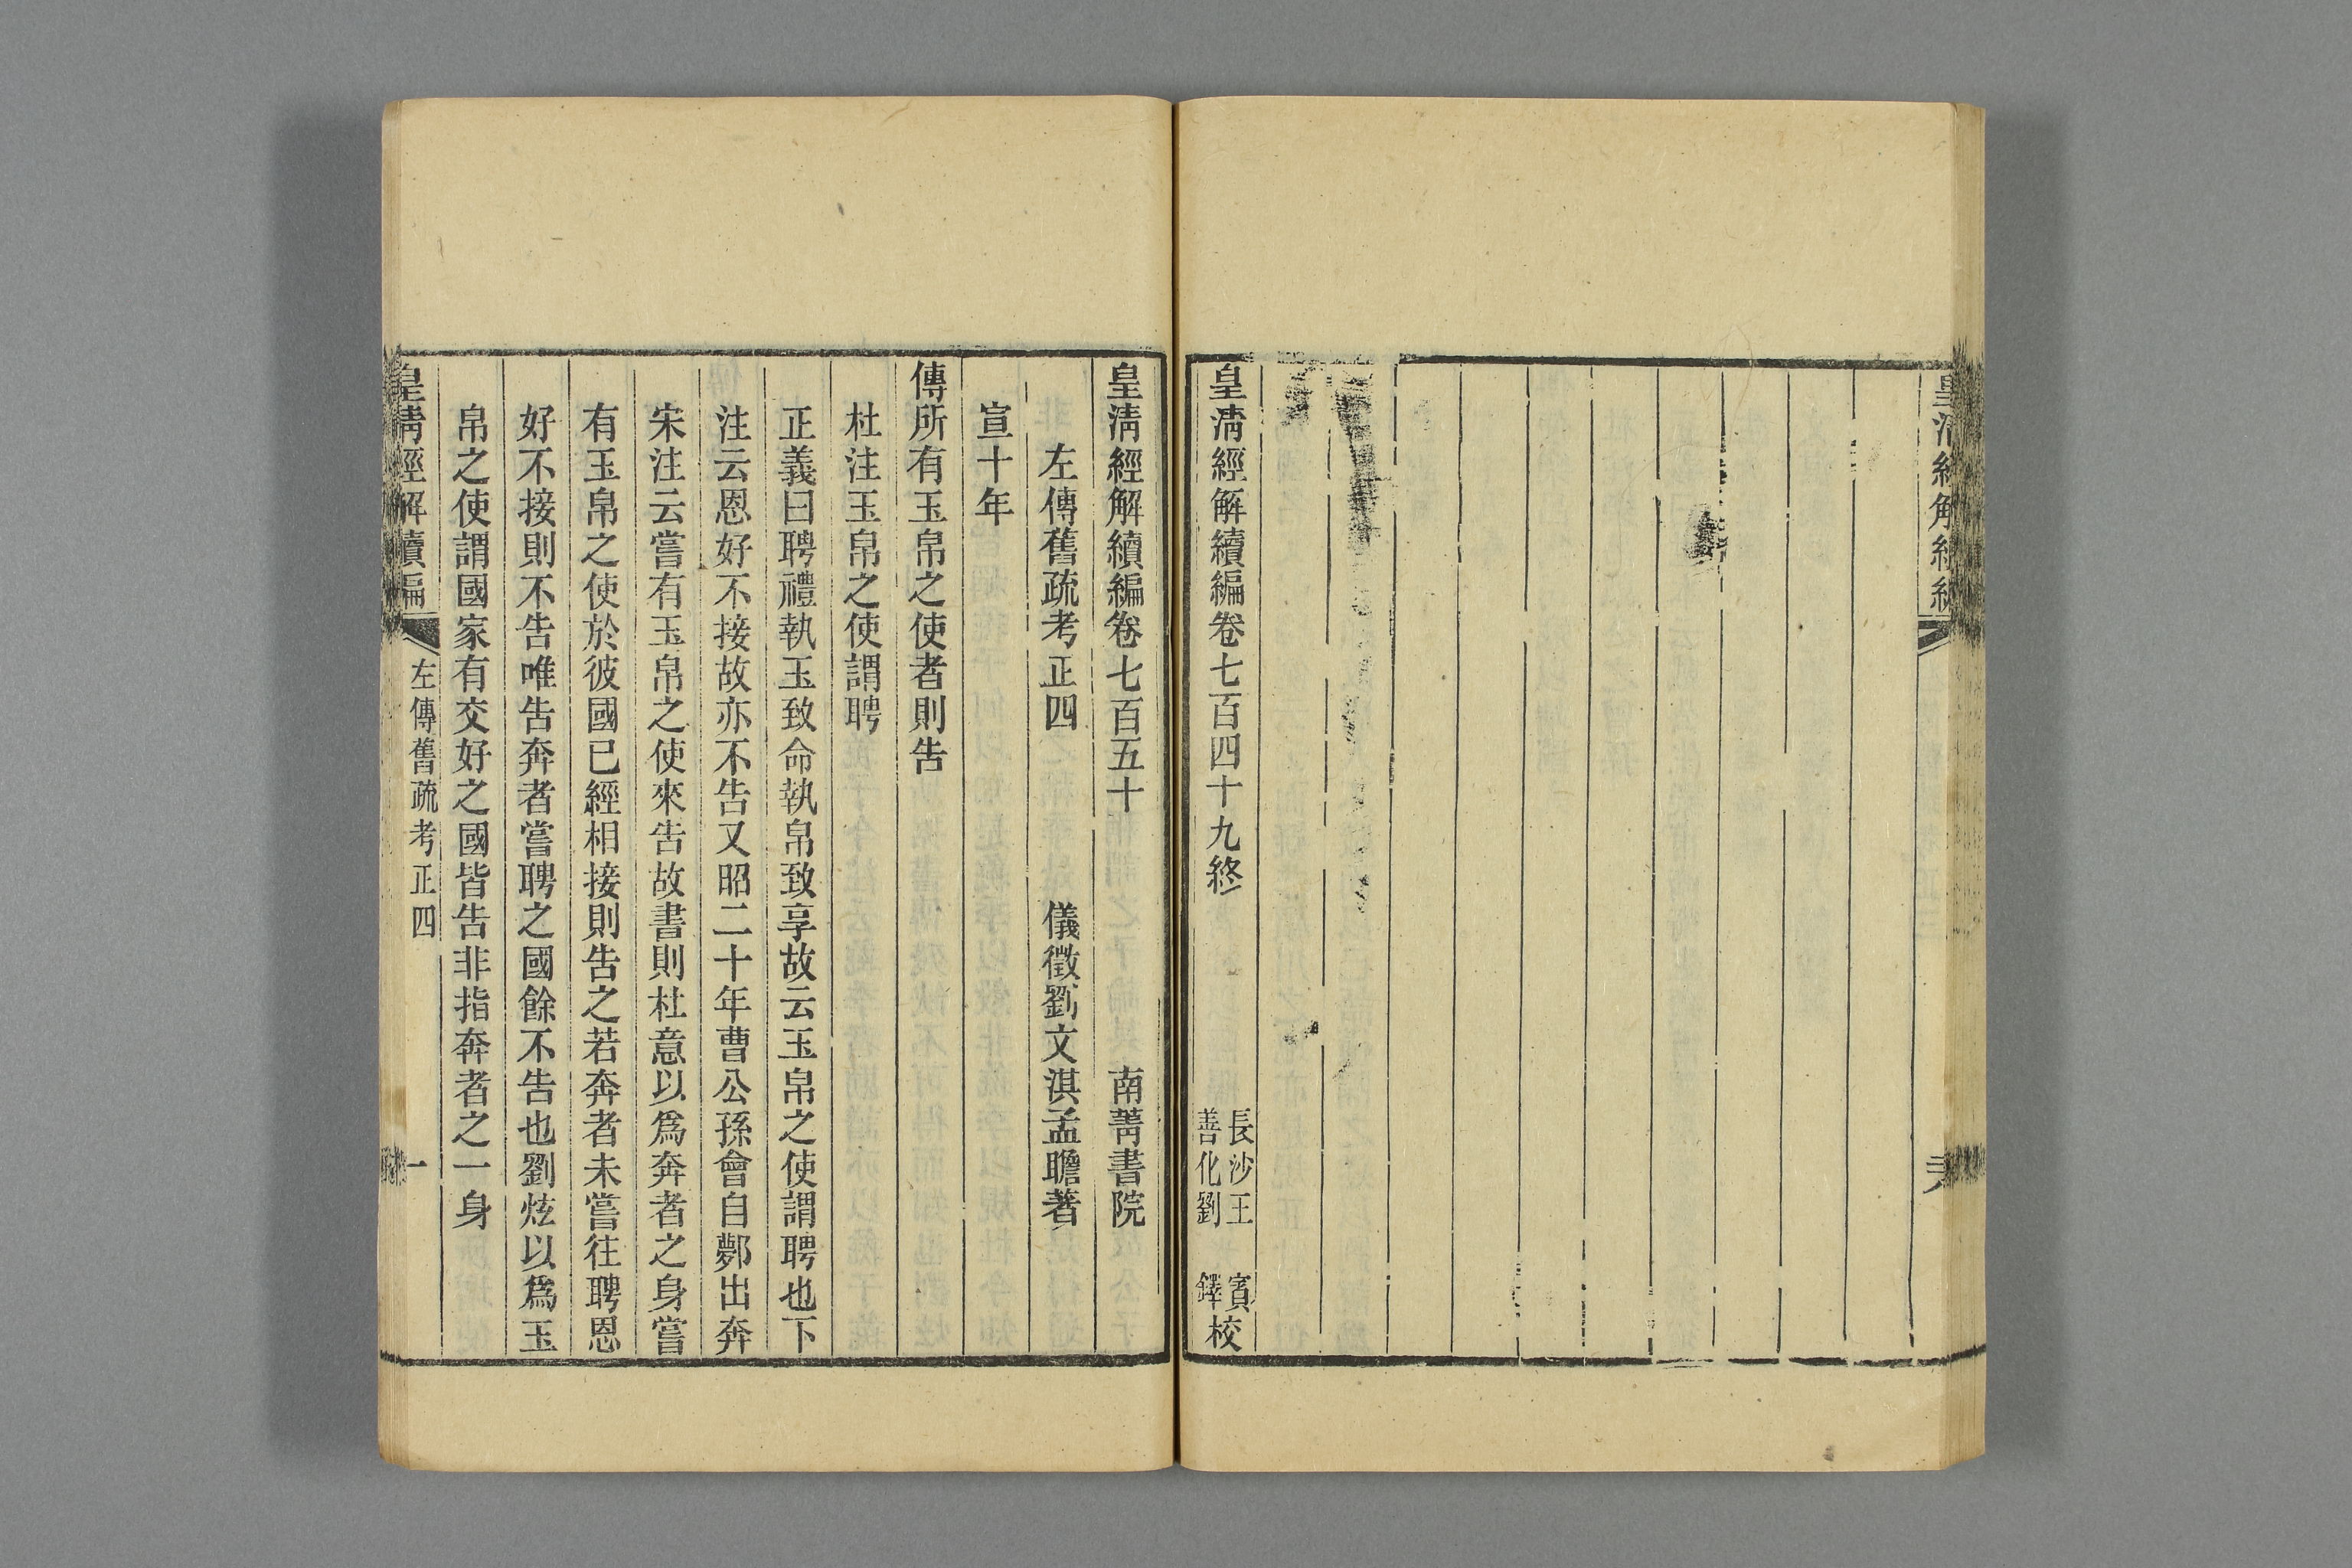 皇清經解續編
皇清經解續編卷七百四十九終
長沙王 賓
善化劉 鐸
校
皇清經解續編卷七百五十 南菁書院
左傳舊疏考正四 儀徵劉文淇孟瞻著
宣十年
傳所有玉帛之使者則告
杜注玉帛之使謂聘
正義曰聘禮執玉致命執帛致享故云玉帛之使謂聘也下
注云恩好不接故亦不告又昭二十年曹公孫會自鄸出奔
宋注云嘗有玉帛之使來告故書則杜意以爲奔者之身嘗
有玉帛之使於彼國已經相接則告之若奔者未嘗往聘恩
好不接則不告唯告奔者嘗聘之國餘不告也劉炫以爲玉
帛之使謂國家有交好之國皆告非指奔者之一身
皇清經解續編 左傳舊疏考正四 一